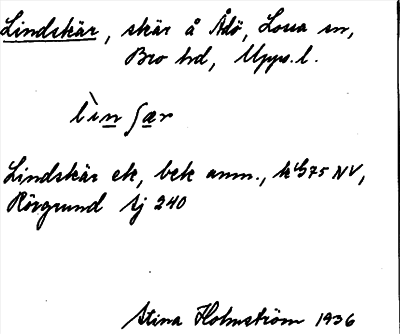 Lindskär, skär å Ådö, Lossa sn,
Bro hd, Upps. l.
lìn ʃær
Lindskär ek, bek anm., k 75 NV,
Rörgrund sj 240
Stina Holmström 1936